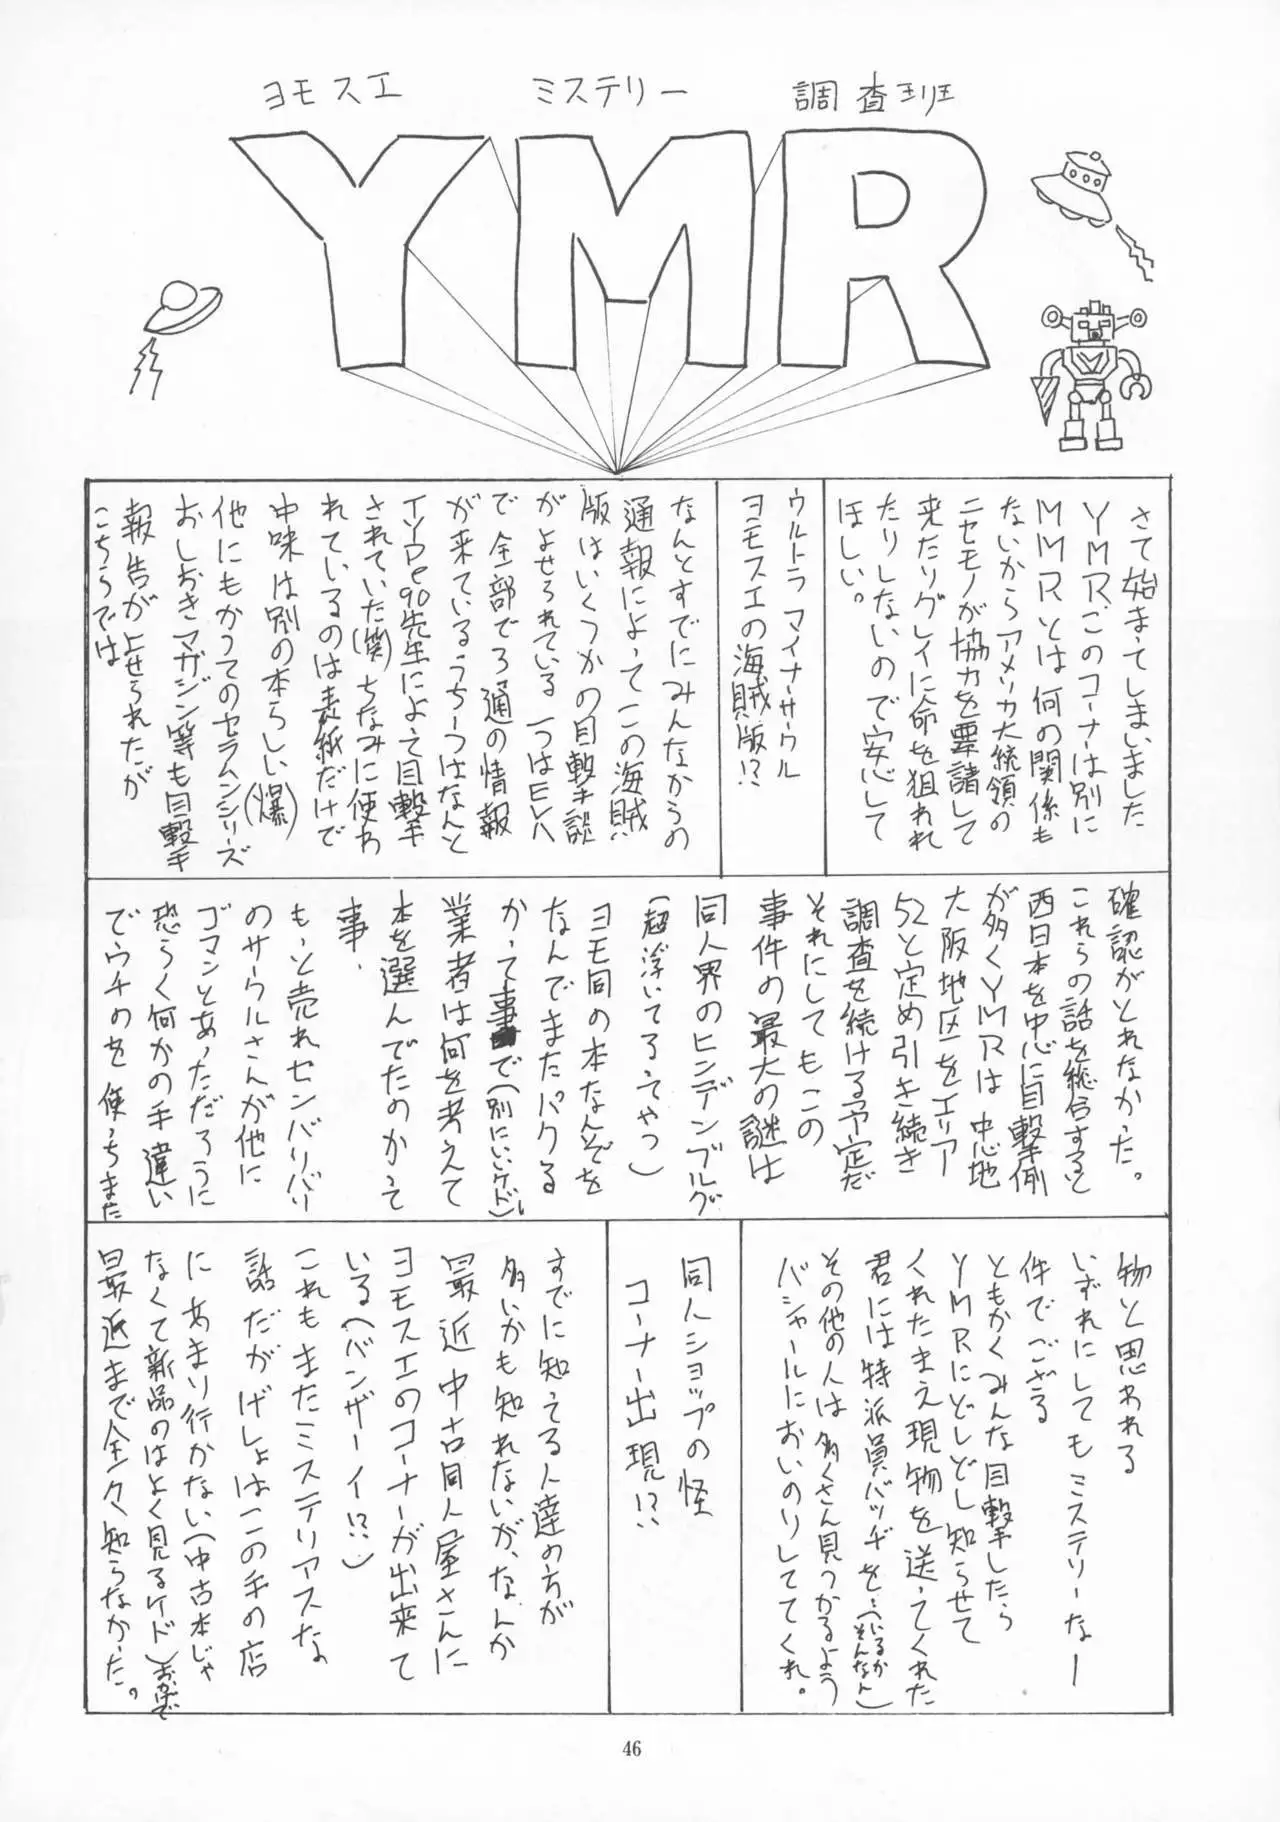 ヨモスエ ミステリー 調査班
YMR
さて始まってしまいました
YMR、このコーナーは別に
MMRとは何の関係も
ないからアメリカ大統領の
ニセモノが協力を要請して
来たりグレイに命を狙われ
たりしないので安心して
ほしい。
ウルトラマイナーサークル
ヨモスエの海賊版!?
なんとすでにみんなからの
通報によってこの海賊
版はいくつかの目撃談
がよせられている 一つはEVA
で全部で3通の情報
が来ているうち一つはなんと
TYPe90先生によって目撃
されていた(笑)ちなみに使わ
れているのは表紙だけで
中味は別の本らしい(爆)
他にもかつてのセラムンシリーズ
おしおきマガジン等も目撃
報告がよせられたが
こちらでは
確認がとれなかった。
これらの話を総合すると
西日本を中心に目撃例
が多くYMRは中心地
大阪地区をエリア
52と定め引き続き
調査を続ける予定だ
それにしてもこの
事件の最大の謎は
同人界のヒンデンブルグ
(超浮いてるってやつ)
ヨモ同の本なんぞを
なんでまたパクる
かって事で(別にいいケド)
業者は何を考えて
本を選んでたのかって
事、
もっと売れセンバリバリ
のサークルさんが他に
ゴマンとあっただろうに
恐らく何かの手違い
でウチのを使っちまた
物と思われる
いずれにしてもミステリーなー
件でござる
ともかくみんな目撃したら
YMRにどしどし知らせて
くれたまえ現物を送ってくれた
君には特派員バッヂを…(いるか
そんなん)
その他の人は多くさん見つかるよう
バシャールにおいのりしててくれ。
同人ショップの怪
コーナー出現!?
すでに知ってる人達の方が
多いかも知れないが、なんか
最近中古同人屋さんに
ヨモスエのコーナーが出来て
いる(バンザーイ!?)
これもまたミステリアスな
話だがげしょはこの手の店
にあまり行かない(中古本じゃ
なくて新品のはよく見るケド)おかげで
最近まで全々知らなかった。
46